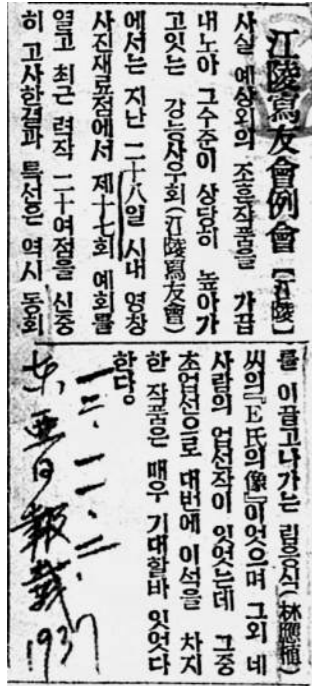 江陵寫友會例會 【江陵】
사실 예상외의 조흔작품을 가끔
내노아 그수준이 상당히 높아가
고잇는 강능사우회(江陵寫友會)
에서는 지난 二十八일 시내 영상
사진재료점에서 제十七회 예회를
열고 최근 력작 二十여점을 신중
히 고사한결과 특선은 역시 동회
를 이끌고나가는 림응식(林應植)
씨의『E氏의像』이엇으며 그외 네
사람의 입선작이 잇엇는데 그중
초입선으로 대번에 이석을 차지
한 작품은 매우 기대할바 잇엇다
한다。
一二、一一、二、
東亞日報載
1937